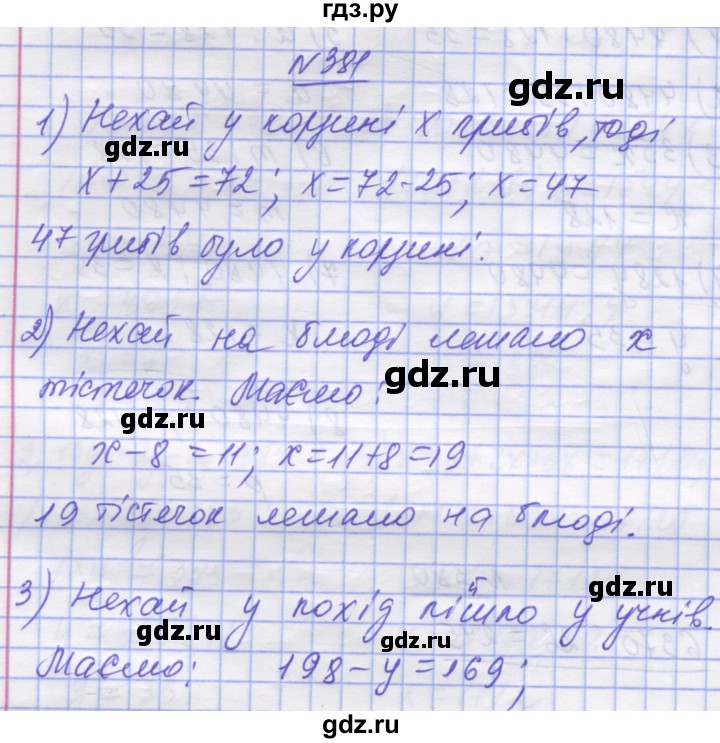 гдз.ру
№381
1) Нехай у корзині х грибів, тоді
gdz.ru
gdz.ru
х+25=72; х=72-25; х=47
47 грибів було у корзині.
2) Нехай на блюді лежало х
gdz.ru
тістечок. Маємо:
gdz.ru
х-8=11; х=11+8=19
19 тістечок лежало на блюді.
gdz.ru
3) Нехай у похід пішло у учнів.
gdz.ru
Маємо: 198-у=169;
gdz.ru